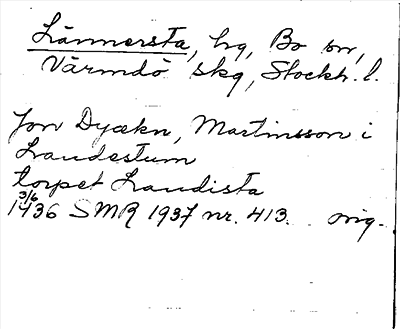 Lännersta, hg, Bo sn,
Värmdö skg, Stockh. l.
Jon Dyækn, Martinsson i
Laudestum
torpet Laudista
3/6
1436 SMR 1937 nr. 413. orig.